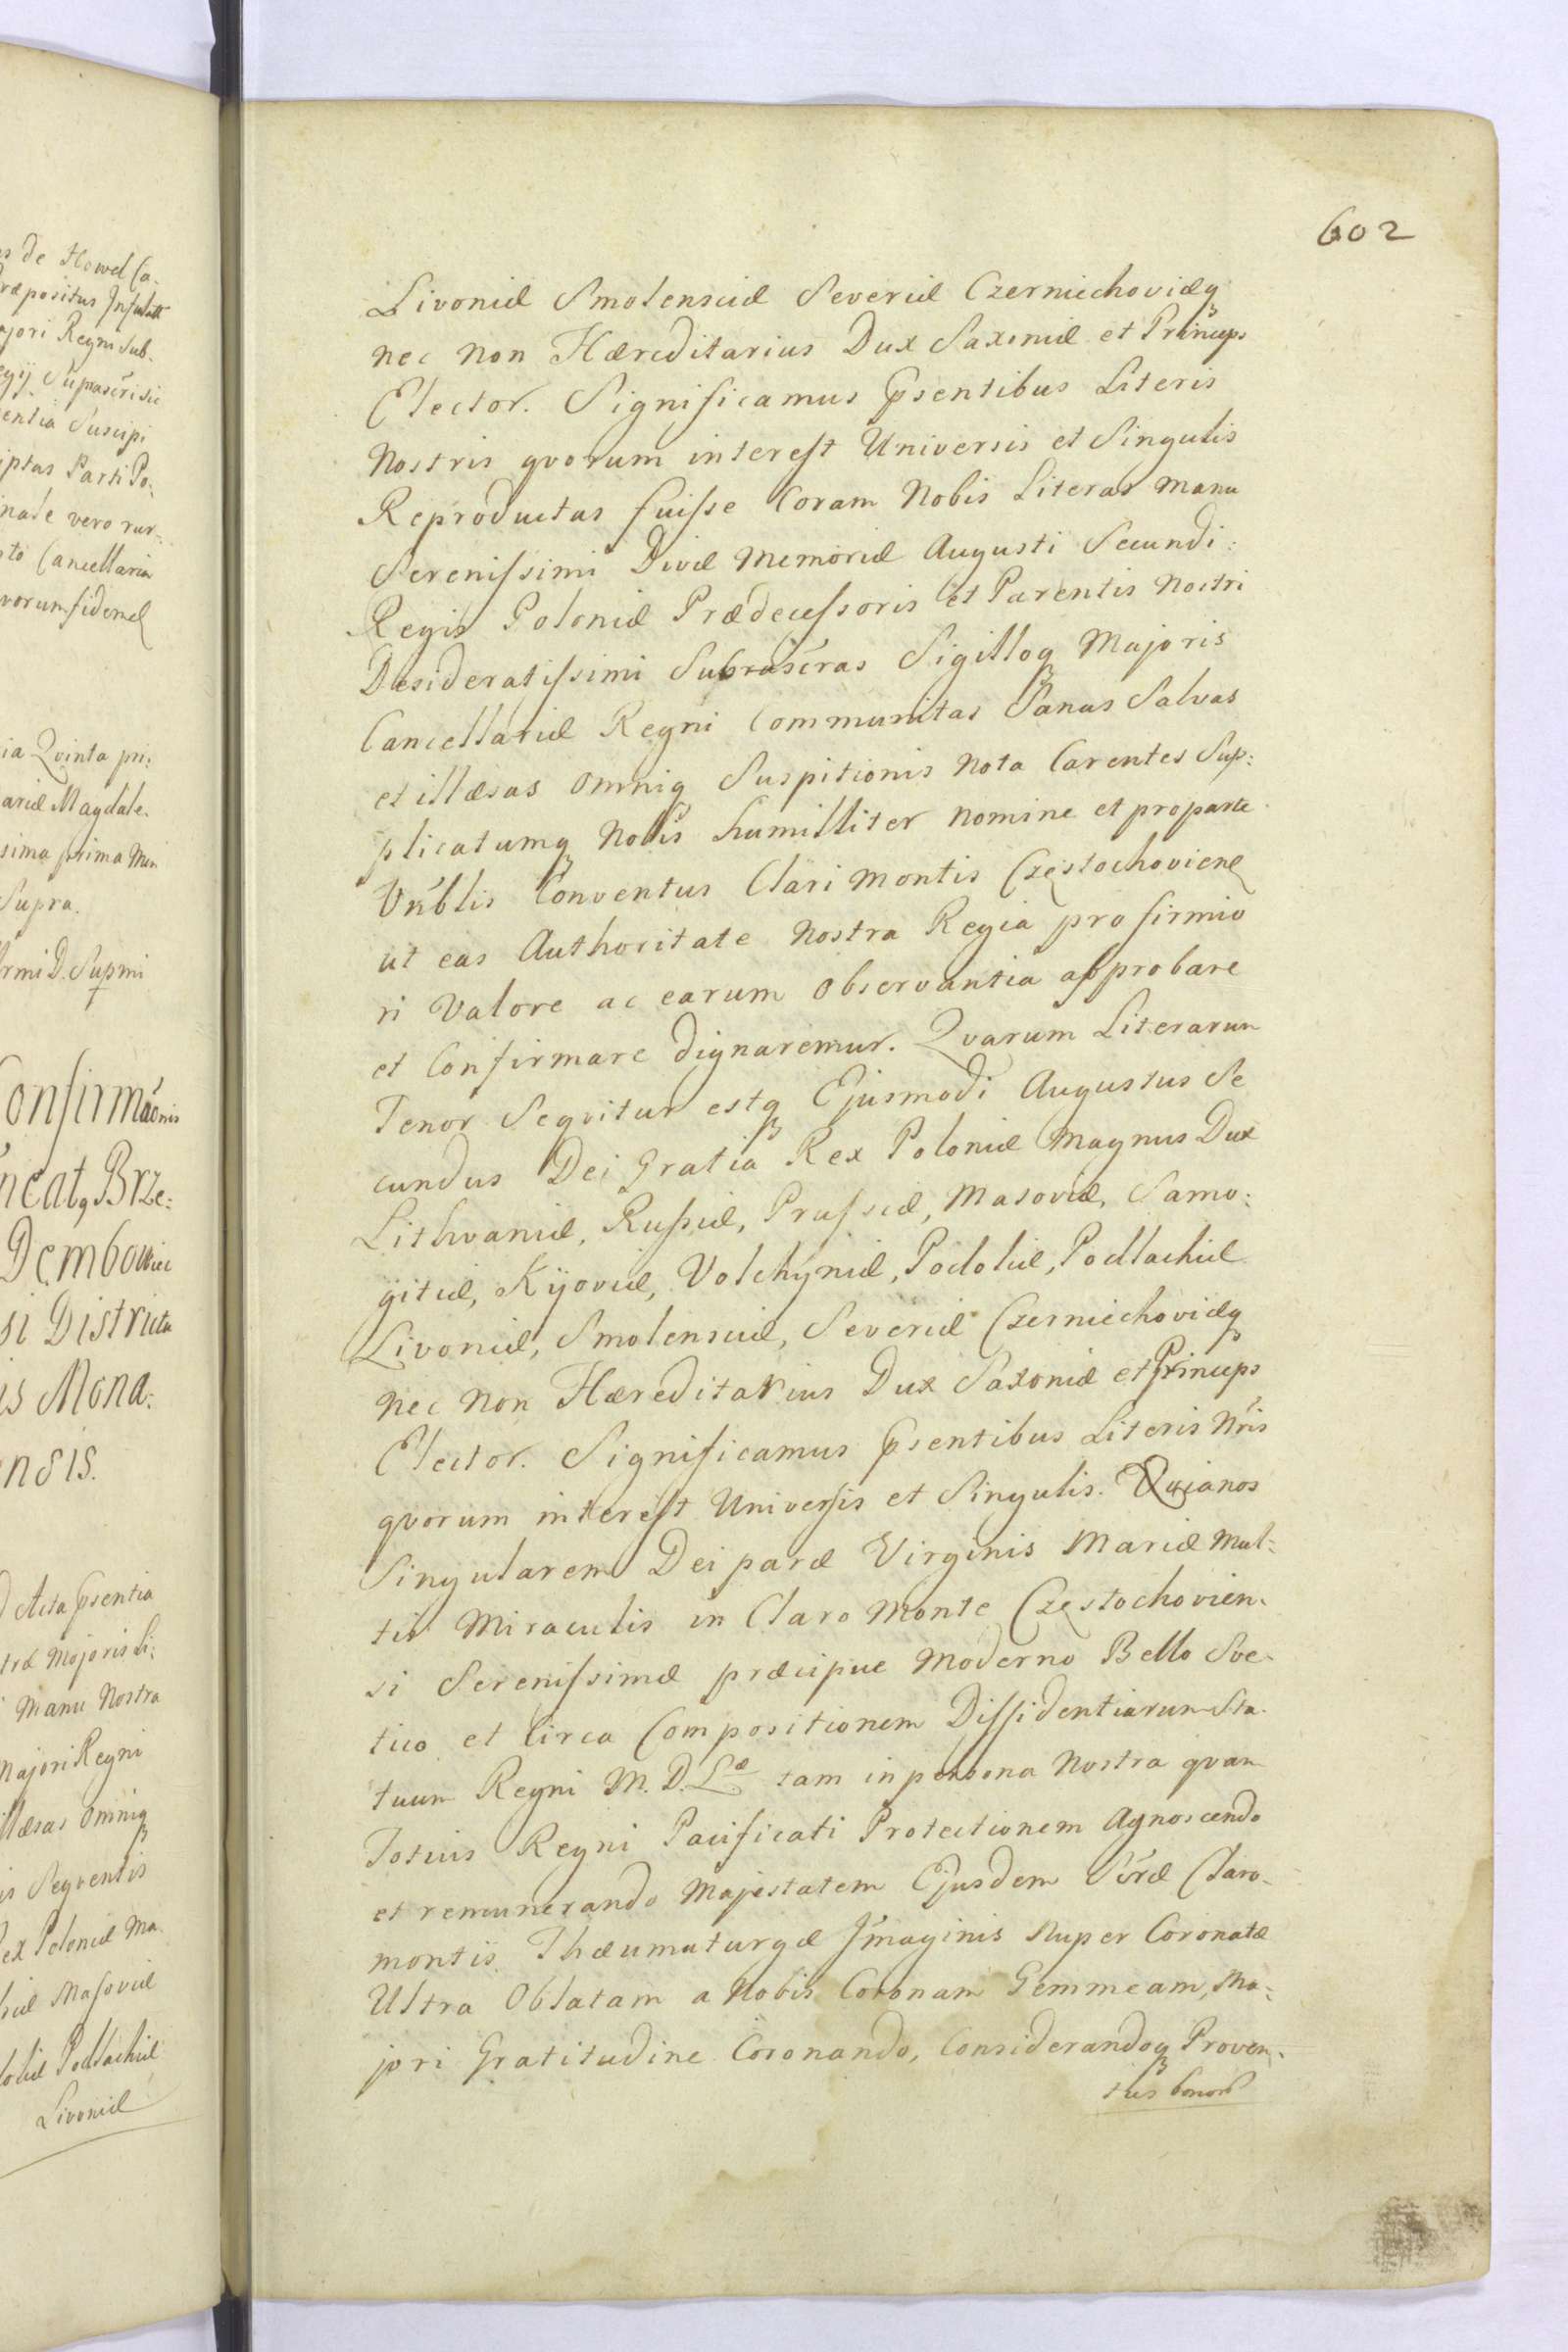 es de Howel Ca-
Præpositus Infulatt
ajori Regni Sub-
entia Suscipi
iptas Parti Po:
nale vero rur-
to Cancellaria
vorum fidem
ia Qvinta pri:
ariæ Magdale-
sima prima Men
Supra.
rmi D. Supmi
Confirmãonis
neatq Brze:
Dembowiec
si Districtu
is Mona:
ensis.
d Acta Pñsentia
træ Majoris Li:
Manu Nostra
Majori Regni
illæsas Omniq
is Seqventis
Rex Poloniæ Ma-
hiæ Masoviæ
oliæ Podlachiæ
Livoniæ
602
Livoniæ Smolensciæ Severiæ Czerniechoviæq
nec non Hæreditarius Dux Saxoniæ et Princeps
Elector. Significamus Pñsentibus Literis
Nostris qvorum interest Universis et Singulis
Reproductas fuisse Coram Nobis Literas manu
Serenissimi Divæ Memoriæ Augusti Secundi:
Regis Poloniæ Prædecessoris et Parentis Nostri
Desideratissimi Subrascras Sigilloq Majoris
Cancellariæ Regni Communitas Sanas Salvas
et illæsas Omniq Suspitionis Nota Carentes Sup:
plicatumq Nobis humilliter nomine et pro parte
Vñblis Conventus Clari Montis Częstochovien
ut eas Authoritate Nostra Regia pro firmio
ri Valore ac earum Observantia approbare
et Confirmare dignaremur. Qvarum Literarum
Tenor Seqvitur estq Ejusmodi Augustus Se
cundus Dei Gratia Rex Poloniæ Magnus Dux
Lithvaniæ, Russiæ, Prussiæ, Masoviæ, Samo:
gitiæ, Kijoviæ, Volchyniæ, Podoliæ, Podlachiæ
Livoniæ, Smolensciæ, Severiæ Czerniechoviæq
nec non Hæreditarius Dux Saxoniæ et Princeps
Elector. Significamus Pñsentibus Literis Nris
qvorum interest Universis et Singulis. Quia nos
Singularem Deiparæ Virginis Mariæ Mul:
tis Miraculis in Claro Monte Częstochovien-
si Serenissimæ præcipue Moderno Bello Sve-
tico et Circa Compositionem Dissidentiarum Sta-
tuum Regni M. D. Læ tam in persona Nostra qvam
Totius Regni Pacificati Protectionem Agnoscendo
et remunerando Majestatem Ejusdem Scræ Claro-
montis Thæumaturgæ Imaginis Nuper Coronatæ
Ultra Oblatam a Nobis Coronam Gemmeam, Ma:
jori Gratitudine Coronando, Considerandoq Proven-
tus bonor